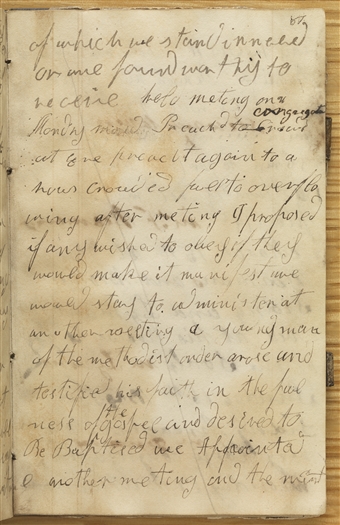 87
of which we stand in need
or are found worthy to
receive held meeting on
Monday Preached to congregat
at preach again to a
hous crowded full to overflo
wing after meting I proposed
if any wished to obey if they
would make it manifest we
would stay to administer at
an other meeting a young man
of the methodist order arose and
testified his faith in the ful
ness of the Gospel and desired to
Be Baptised we Appointa
mother meting and the next